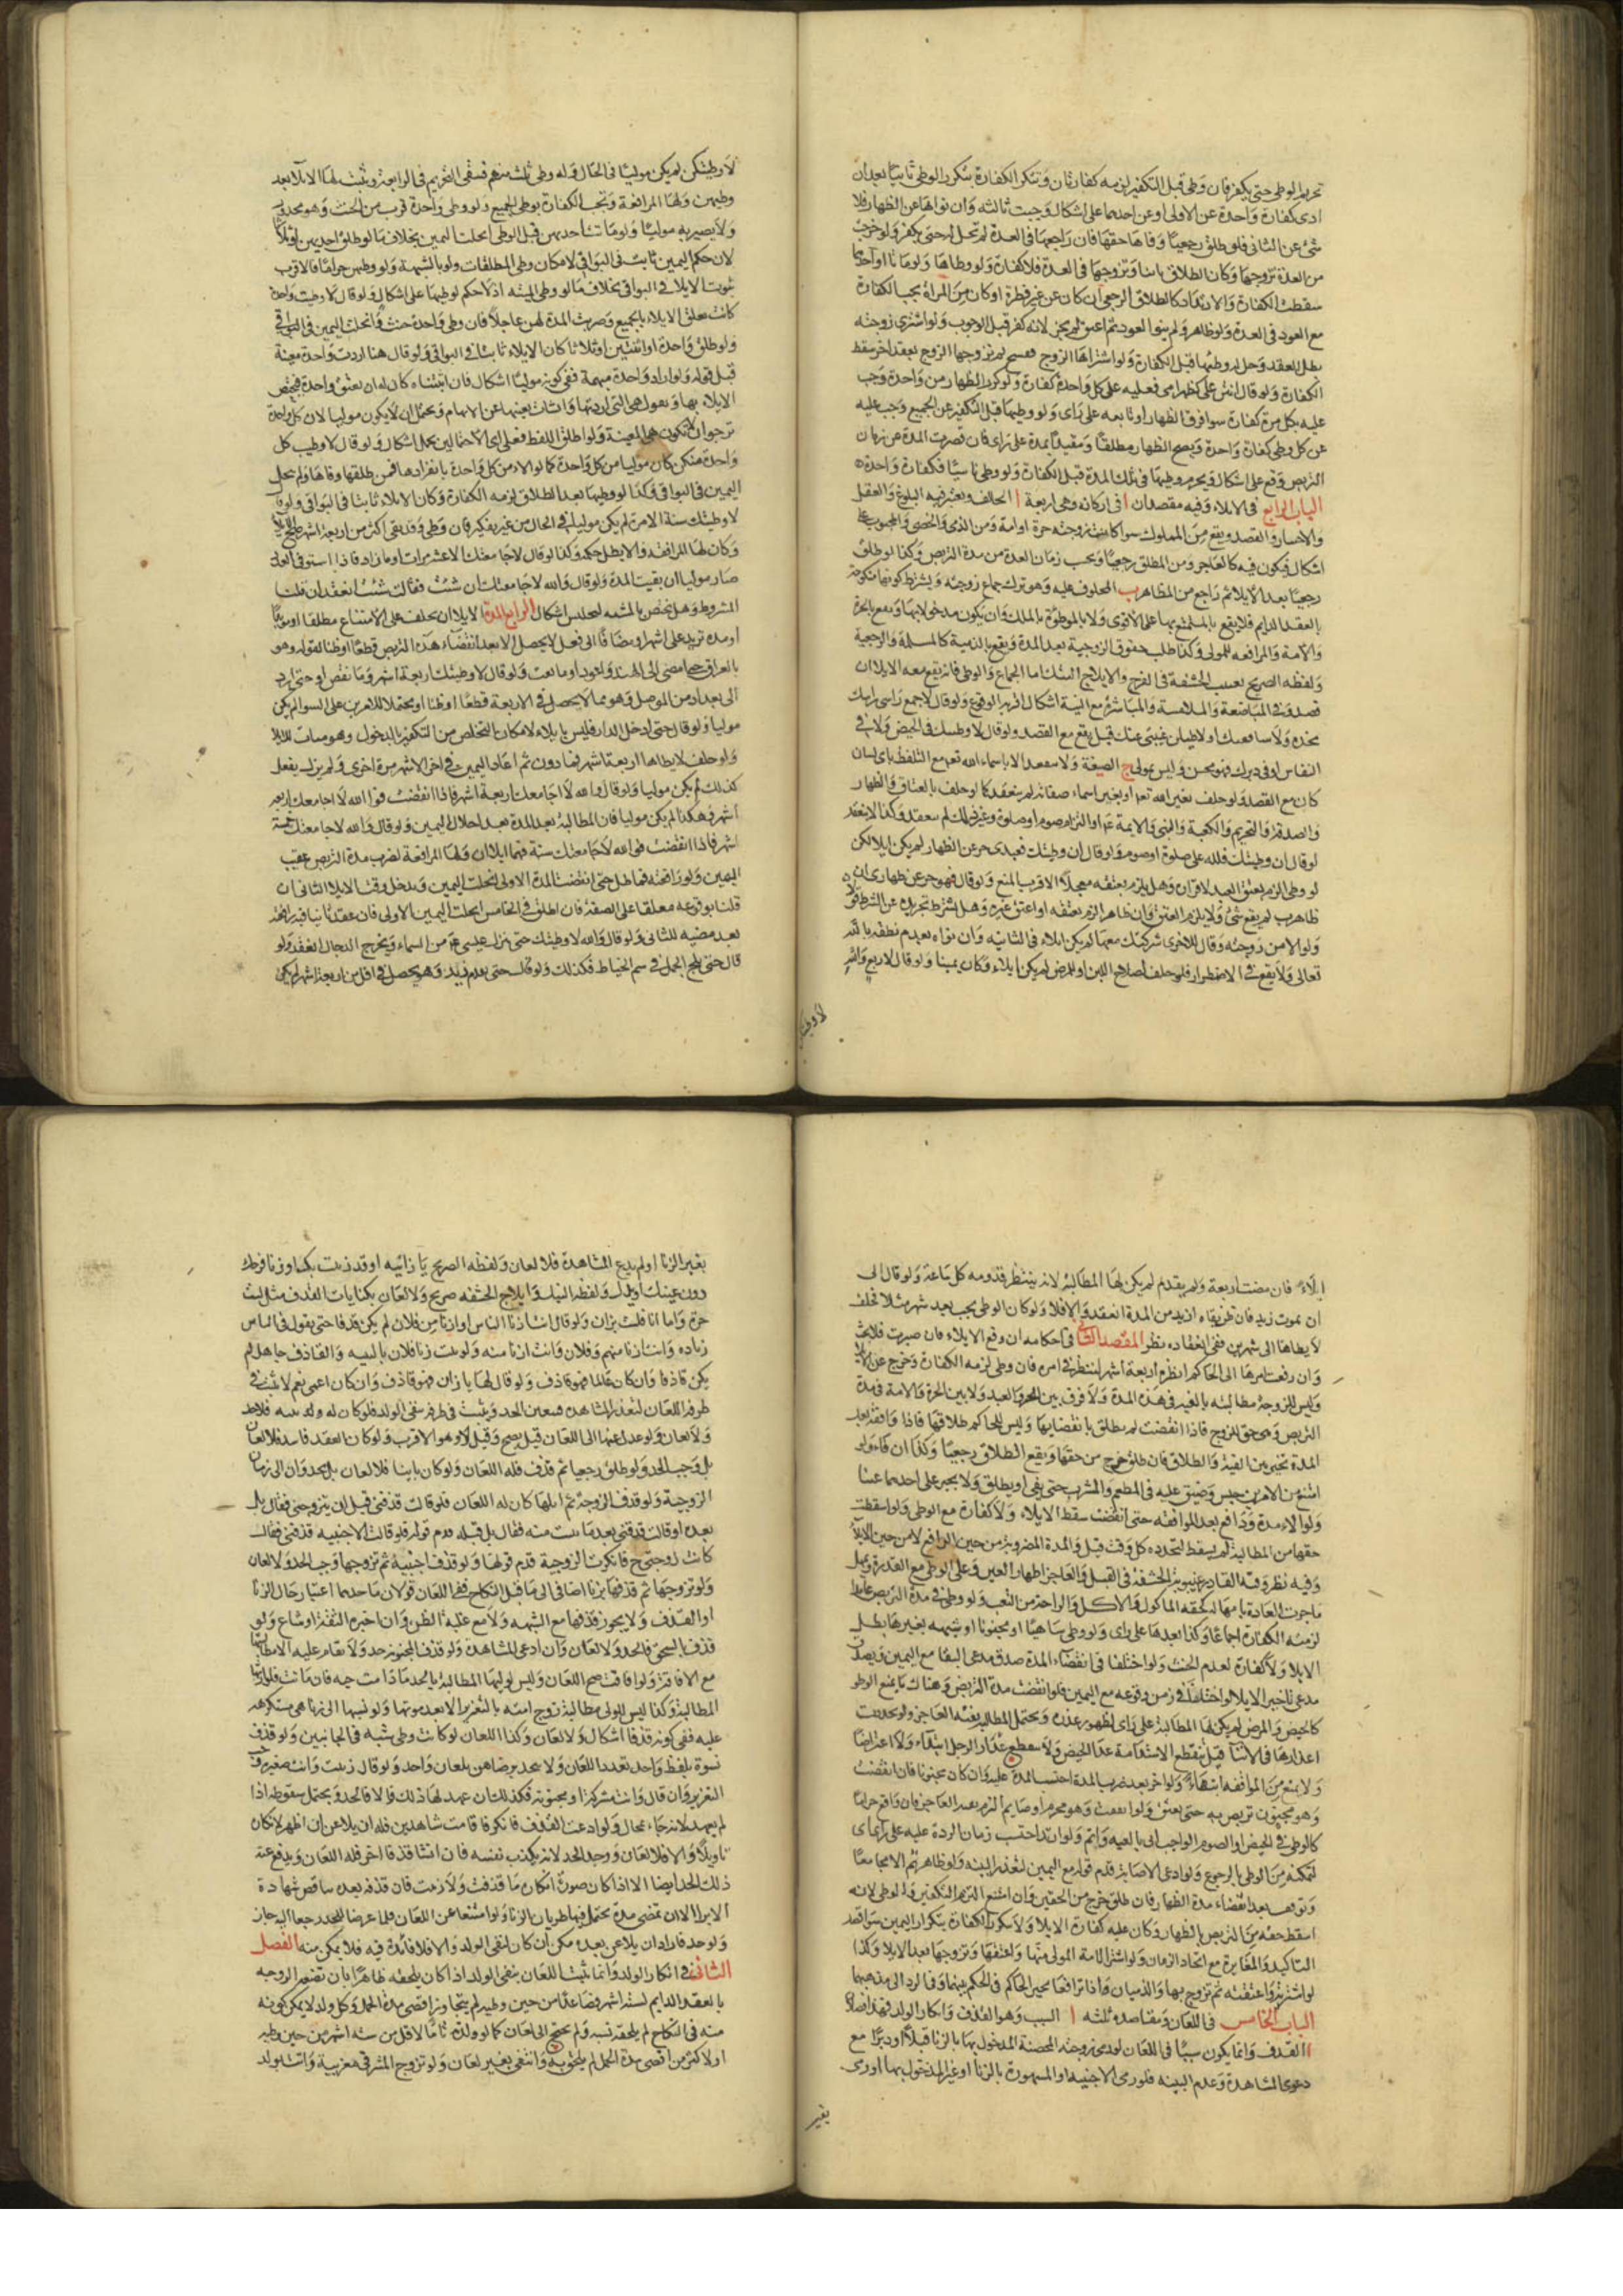 تحريم الوطى حتى يكفر فان وطى قبل التكفير لزمه كفارتان وتتكرر الكفارة بتكرر الوطى ثانيا بعد ان
ادى كفارة واحدة عن الاولى او عن احدهما على اشكال وجبت ثالثه وان نواها عن الظهار فلا
شئ عن الثانى فلو طلق رجعيا وفاها حقها فان راجعها فى العدة لم تحل له حتى يكفر ولو خرجت
من العدة تزوجها وكان الطلاق باينا وتزوجها فى العدة فلا كفارة ولو وطاها ولو ماتا او احدهما
سقطت الكفارة والارتداد كالطلاق الرجعى ان كان عن غير فطرة او كان من المراة يجب الكفارة
مع العود فى العدة ولو ظاهر ولم ينو العود ثم اعتق لم يجز لانه كفر قبل الوجوب ولو اشترى زوجته
بطل العقد وحل له وطيها قبل الكفارة ولو اشتراها الزوج ففسخ ثم تزوجها الزوج بعقد اخر سقط
الكفارة ولو قال انتن على كظهر امى فعليه على كل واحدة كفارة ولو كرر الظهار من واحدة وجب
عليه بكل مرة كفارة سوا فرق الظهار او تابعه على راى ولو وطيها قبل التكفير عن الجميع وجب عليه
عن كل وطى كفارة واحدة ويصح الظهار مطلقا ومقيدا بمدة على راى فان قصرت المدة عن زمان
التربص وقع على اشكال ويحرم وطيها فى تلك المدة قبل الكفارة ولو وطى ناسيا فكفارة واحدة
الباب الرابع فى الايلاء وفيه مقصدان ا فى اركانه وهى اربعة ا الحالف ويعتبر فيه البلوغ والعقل
والاختيار والقصد ويقع من المملوك سوا كانت زوجته حرة او امة ومن الذمى والخصى والمجبوب على
اشكال فيكون فيه كالعاجز ومن المطلق رجعيا ويحسب زمان العدة من مدة التربص وكذا لو طلق
رجعيا بعد الايلاء ثم راجع من المظاهر ب المحلوف عليه وهو ترك جماع زوجته ويشترط كونها منكوحة
بالعقد الدايم فلا يقع بالمستمتع بها على الاقوى ولا بالموطؤة بالملك وان يكون مدخولا بها ويقع بالحرة
والامة والمرافعه للمولى وكذا طلب حقوق الزوجية بعد المدة ويقع بالذمية كالمسلمة والرجعية
ولفظه الصريح تغييب الحشفة فى الفرج والايلاج النيك اما الجماع والوطى فانه يقع معه الايلا ان
قصد وفى المباضعة والملامسة والمباشرة مع النية اشكال اقربه الوقوع ولو قال لا جمع راسى راسك
مخده ولا ساقفتك او لاطيلن غيبتى عنك قيل يقع مع القصد ولو قال لا وطيتك فى الحيض ولا فى
النفاس او فى دبرك فهو محسن وليس بمولى ج الصيغة ولا ينعقد الا باسماء الله تعالى مع التلفظ باى لسان
كان مع القصد ولو حلف بغير الله تعالى او بغير اسماء صفاته لم ينعقد كما لو حلف بالعتاق والظهار
والصدقة والتحريم والكعبة والنبى والايمة او التزام صوم او صلوة وغير ذلك لم ينعقد وكذا لا ينعقد
لو قال ان وطيتك فلله على صلوة او صوم ولو قال ان وطيتك فعبدى حر عن الظهار لم يكن ايلا لكن
لو وطى الزم بعتق العبد لاقراره وهل يلزم بعتقه معجلا الاقرب المنع ولو قال فهو حر عن ظهارى ان
ظاهرت لم يقع شئ ولا يلزم العتق وان ظاهر الزم بعتقه او اعتق غيره وهل يشترط تجريده عن الشرط قولان
ولو الا من زوجته وقال للاخرى شركتك معها لم يكن ايلاء فى الثانيه وان نواه لعدم نطقه بالله
تعالى ولا يقع فى الاضطرار فلو حلف لصلاح اللبن او المرض لم يكن ايلاء وكان يمينا ولو قال لاربع والله
لا وطيتكن
لا وطيتكن لم يكن موليا فى الحال وله وطى ثلث منهم فيبقى التحريم فى الرابعة ويثبت لها الايلا بعد
وطيهن ولها المرافعة وتجب الكفارة بوطى الجميع ولو وطى واحدة قرب من الحنث وهو محذور
ولا يصير به موليا ولو ماتت احديهن قبل الوطى انحلت اليمين بخلاف ما لو طلق احديهن او ثلاثا
لان حكم اليمين ثابت فى البواقى لامكان وطى المطلقات ولو بالشبهة ولو وطيهن حراما فالاقرب
ثبوت الايلا فى البواقى بخلاف ما لو وطى الميته اذ لا حكم لوطيها على اشكال ولو قال لا وطيت واحدة
كانت تعلق الايلاء بالجميع وضربت المدة لهن عاجلا فان وطى واحدة حنث وانحلت اليمين فى البواقى
ولو طلق واحدة او اثنتين او ثلاثا كان الايلاء ثابتا فى البواقى ولو قال هنا اردت واحدة معينة
قبل قوله ولو اراد واحدة مبهمة ففى كونه موليا اشكال فان اثبتناه كان له ان يعين واحدة فيختص
الايلاء بها ويقول هى التى اردتها وانشات تعيينها عن الابهام ويحتمل ان لا يكون موليا لان كل واحدة
ترجو ان لا تكون هى المعينة ولو اطلق اللفظ فعلى اى الاحتمالين يحمل اشكال ولو قال لا وطيت كل
واحدة منكن كان موليا من كل واحدة كما لو الا من كل واحدة بانفرادها فمن طلقها وفاها ولم يحل
اليمين فى البواقى وكذا لو وطيها بعد الطلاق لزمه الكفارة وكان الايلاء ثابتا فى البواقى ولو قال
لا وطيتك سنة الا مرة لم يكن موليا فى الحال من غير تكفير فان وطى وقد بقى اكثر من اربعة اشهر صح الايلا
وكان لها المرافعة والا بطل حكمه وكذا لو قال لا جامعتك الا عشر مرات او ما زاد فاذا استوفى العدد
صار موليا ان بقيت المدة ولو قال والله لا جامعتك ان شئت فقالت شئت انعقد ان قلنا
المشروط وهل يختص بالمشيه لمجلس اشكال الرابع المدة الايلا ان يحلف على الامتناع مطلقا او مؤبدا
او مدة تزيد على اشهر او مضافا الى فعل لا يحصل الا بعد انقضاء هذه التربص قطعا او ظنا لقوله وهو
بالعراق حتى امضى الى الهند واعود او ما بعت ولو قال لا وطيتك اربعة اشهر وما نقص او حتى ارد
الى بغداد من الموصل وهو مما لا يحصل فى الاربعة قطعا او ظنا او محتملا للامرين على السوا لم يكن
موليا ولو قال حتى ادخل الدار فليس بايلاء لامكان التخلص من التكفير بالدخول وهو مناف للايلا
ولو حلف لا يطاها اربعة اشهر فما دون ثم اعاد اليمين فى اخر الاشهر مرة اخرى ولم يزل يفعل
كذلك لم يكن موليا ولو قال والله لا اجامعك اربعة اشهر فاذا انقضت فوالله لا اجامعك اربعه
اشهر وهكذا لم يكن موليا فان المطالبة بعد المدة بعد احلال اليمين ولو قال والله لا جامعتك خمسة
اشهر فاذا انقضت فوالله لا جامعتك سنة فهما ايلاان ولها المرافعة لضرب مدة التربص عقيب
اليمين ولو رافعته فماطل حتى انقضت المدة الاولى انحلت اليمين ويدخل وقت الايلا الثانى ان
قلنا بوقوعه معلقا على الصفة فان اطلق فى الخامس انحلت اليمين الاولى فان عقد ثانيا فيه رافعته
بعد مضيه للثانى ولو قال والله لا وطيتك حتى ينزل عيسى من اسماء ويخرج الدجال انعقد ولو
قال حتى يلج الجمل فى سم الخياط فكذلك ولو قال حتى يقدم زيد وهو يحصل فى اقل من اربعة اشهر لم يكن
ايلاء فان مضت اربعة ولم يقدم لم يكن لها المطالبة لانه ينتظر قدومه كل ساعة ولو قال الى
ان يموت زيد فان ظن بقاه ازيد من المدة انعقد والا فلا ولو كان الوطى يجب بعد شهر مثلا فحلف
لا يطاها الى شهرين ففى انعقاده نظر المقصد الثانى فى احكامه ان وقع الايلاء فان صبرت فلا بحث
وان رفعت امرها الى الحاكم انظره اربعة اشهر لينظر فى امره فان وطى لزمه الكفارة وخرج عن الايلا
وليس للزوجة مطالبته بالفية فى هذه المدة ولا فرق بين الحر والعبد ولا بين الحرة والامة فى مدة
التربص وهى حق للزوج فاذا انقضت لم يطلق بانقضايها وليس للحاكم طلاقها فاذا وافقته بعد
المدة تخير بين الفية والطلاق فان طلق خرج من حقها ويقع الطلاق رجعيا وكذا ان فاء ولو
امتنع من الامرين حبس وضيق عليه فى المطعم والمشرب حتى يفى او يطلق ولا يجبر على احدهما عينا
ولو الا مدة ودافع بعد الموافقه حتى انقضت سقط الايلاء ولا كفارة مع الوطى ولو اسقطت
حقها من المطالبة لم يسقط لتجدده كل وقت قيل والمدة المضروبة من حين الترافع لا من حين الايلا
وفيه نظر وفية القادر غيبوبة الحشفة فى القبل والعاجز اظهار العزم على الوطى مع القدرة ويمهل
ما جرت العادة بامهاله كخفة الماكول والاكل والراحة من التعب ولو وطى فى مدة التربص عامدا
لزمته الكفارة اجماعا وكذا بعدها على راى ولو وطى ساهيا او مجنونا او شبهه بغيرها بطل
الايلا ولا كفارة لعدم الحنث ولو اختلفا فى انقضاء المدة صدق مدعى البقا مع اليمين ويصدق
مدعى تاخير الايلا لو اختلفا فى زمن وقوعه مع اليمين فلو انقضت مدة التربص وهناك ما يمنع الوطى
كالحيض والمرض لم يكن لها المطالبة على راى لظهور عذره ويحتمل المطالبة بفئه العاجز ولو تجددت
اعذارها فى الاثنا قيل تنقطع الاستدامة عدا الحيض ولا ينقطع باعذار الرجل ابتداء ولا اعتراضا
ولا يمنع من الموافقه انتهاء ولو جن بعد ضرب المدة احتسب المدة عليه وان كان مجنونا فان انقضت
وهو مجنون تربص به حتى يعتق ولو انقضت وهو محرم او صايم الزم بفية العاجز فان واقع حراما
كالوطى فى الحيض او الصوم الواجب اتى بالفية واثم ولو ارتد احتسب زمان الردة عليه على راى
لتمكنه من الوطى بالرجوع ولو ادعى الاصابة قدم قوله مع اليمين لتعذر البينه ولو ظاهر ثم الا صحا معا
وتوقف بعد انقضاء مدة الظهار فان طلق خرج من الحقين وان امتنع الزم التكفير والوطى لانه
اسقط حقه من التربص بالظهار وكان عليه كفارة الايلا ولا يتكرر الكفارة بتكرار اليمين سوا قصد
التاكيد والمغايرة مع اتحاد الزمان ولو اشترى الامة المولى منها واعتقها وتزوجها بعد الايلا وكذا
لو اشترته واعتقته ثم تزوج بها والذميان اذا ترافعا تخير الحاكم فى الحكم بينهما وفى الرد الى مذهبهما
الباب الخامس فى اللعان ومقاصده ثلثه ا السبب وهو القذف وانكار الولد فهنا فصلان
ا القذف وانما يكون سببا فى اللعان لو رمى زوجته المحصنة المدخول بها بالزنا قبلا او دبرا مع
دعوى المشاهدة وعدم البينه فلو رمى الاجنبيه او المشهورة بالزنا او غير المدخول بها او رمى
بغير
بغير الزنا او لم يدع المشاهدة فلا لعان ولفظه الصريح يا زانيه او قد زنيت بك او زنا فرجك
دون عينك ويدك ولفظ النيك وايلاج الحشفه صريح ولا لعان بكنايات القذف مثل لست
حرة واما انا فلست بزان ولو قال انت ازنا الناس او ازنا من فلان لم يكن قذفا حتى يقول فى الناس
زناه وانت ازنا منهم وفلان وانت ازنا منه ولو ثبت زنا فلان بالبينه والقاذف جاهل لم
يكن قاذفا وان كان عالما فهو قاذف ولو قال لها يا زان فهو قاذف وان كان اعمى نعم لا يثبت فى
طرفه اللعان لتعذر المشاهده فيتعين الحد ويثبت فى طرفه بنفى الولد فلو كان له ولد بينه فلا حد
ولا لعان ولو عدل عنها الى اللعان قيل يصح وقيل لا وهو الاقرب ولو كان العقد فاسدا فلا لعان
بل وجب الحد ولو طلق رجعيا ثم قذف فله اللعان ولو كان باينا فلا لعان بل يحد وان الى زمان
الزوجية ولو قذف الزوجة ثم ابانها كان له اللعان فلو قالت قذفنى قبل ان يتزوجنى فقال بل
بعده او قالت قذفنى بعد ما بنت منه فقال بل قبله قدم قوله فلو قالت الاجنبيه قذفنى فقال
كانت زوجتى ح فانكرت الزوجية قدم قولها ولو قذف اجنبية ثم تزوجها وجب الحد ولا لعان
ولو تزوجها ثم قذفها بزنا اضافه الى ما قبل النكاح ففى اللعان قولان ماخذهما اعتبار حال الزنا
او القذف ولا يجوز قذفها مع الشبهه ولا مع غلبة الظن وان اخبره الثقة او شاع ولو
قذف بالسحق فالحد ولا لعان وان ادعى المشاهدة ولو قذف المجنونه حد ولا يقام عليه الا بمطالبتها
مع الافاقة ولو افاقت صح اللعان وليس لوليها المطالبة بالحد ما دامت حيه فان ماتت فلوارثها
المطالبة وكذا ليس للمولى مطالبة زوج امته بالتعزير الا بعد موتها ولو نسبها الى زنا هى مستكرهه
عليه ففى كونه قذفا اشكال ولا لعان وكذا اللعان لو كانت وطى شبه فى الجانبين ولو قذف
نسوة بلفظ واحد تعدد اللعان ولا يتحد برضاهن بلعان واحد ولو قال زنيت وانت صغيرة وجب
التعزير وان قال وانت مشركة او مجنونه فكذلك ان عهد لها ذلك والا فالحد ويحتمل سقوطه اذا
لم يعهد لانه جاء بمحال ولو ادعت القذف فانكر فاقامت شاهدين فله ان يلاعن ان اظهر لانكاره
تاويلا والا فلا لعان ووجب الحد لانه يكذب نفسه فان انشا قذفا اخر فله اللعان ويدفع عنه
ذلك الحد ايضا الا اذا كان صورة انكاره ما قذفت ولا زنت فان قذفه بعده يناقض شهادة
الابراء الا ان تمضى مدة يحتمل فيها طريان الزنا ولو امتنعا عن اللعان فلما عرضا للحد رجعا اليه جاز
ولو حد فاراد ان يلاعن بعده مكن ان كان لنفى الولد والا فلا فائدة فيه فلا يمكن منه الفصل
الثانى فى انكار الولد وانما يثبت اللعان بنفى الولد اذا كان يلحقه ظاهرا بان تضعه الزوجه
بالعقد الدايم لستة اشهر فصاعدا من حين وطيه لم يتجاوز اقصى مدة الحمل وكل ولد لا يمكن كونه
منه فى النكاح لم يلحقه نسبه ولم يحتج الى لعان كما لو ولدته تاما لاقل من سته اشهر من حين وطيه
او لاكثر من اقصى مدة الحمل لم يلحق به وانتفى بغير لعان ولو تزوج المشرقى مغربية واتت بولد